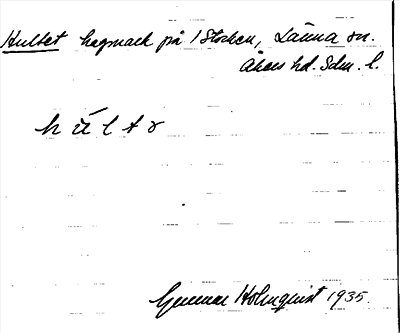 Hultet hagmark på 1 Stocken, Länna sn.
Åkers hd. Sdm. l.
h ù l t ɤ
Gunnar Holmquist 1935.